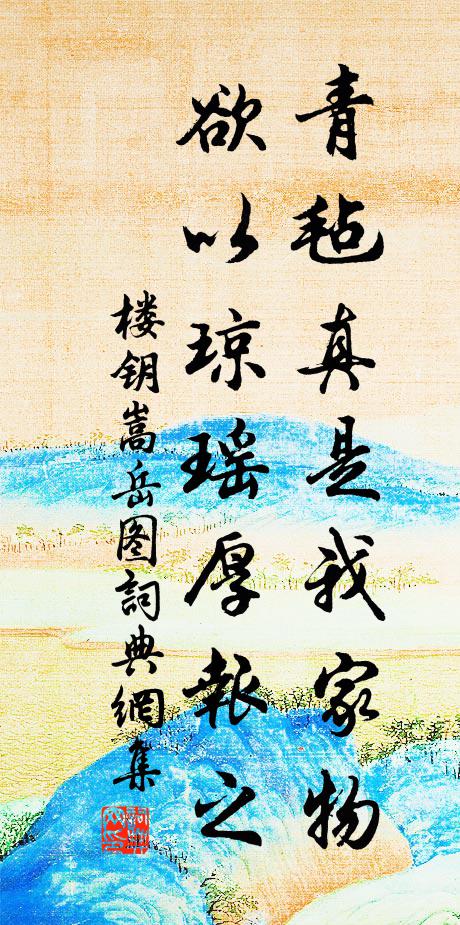 青毡真是我家物
欲以琼瑶厚报之
楼钥嵩岳图词典網集